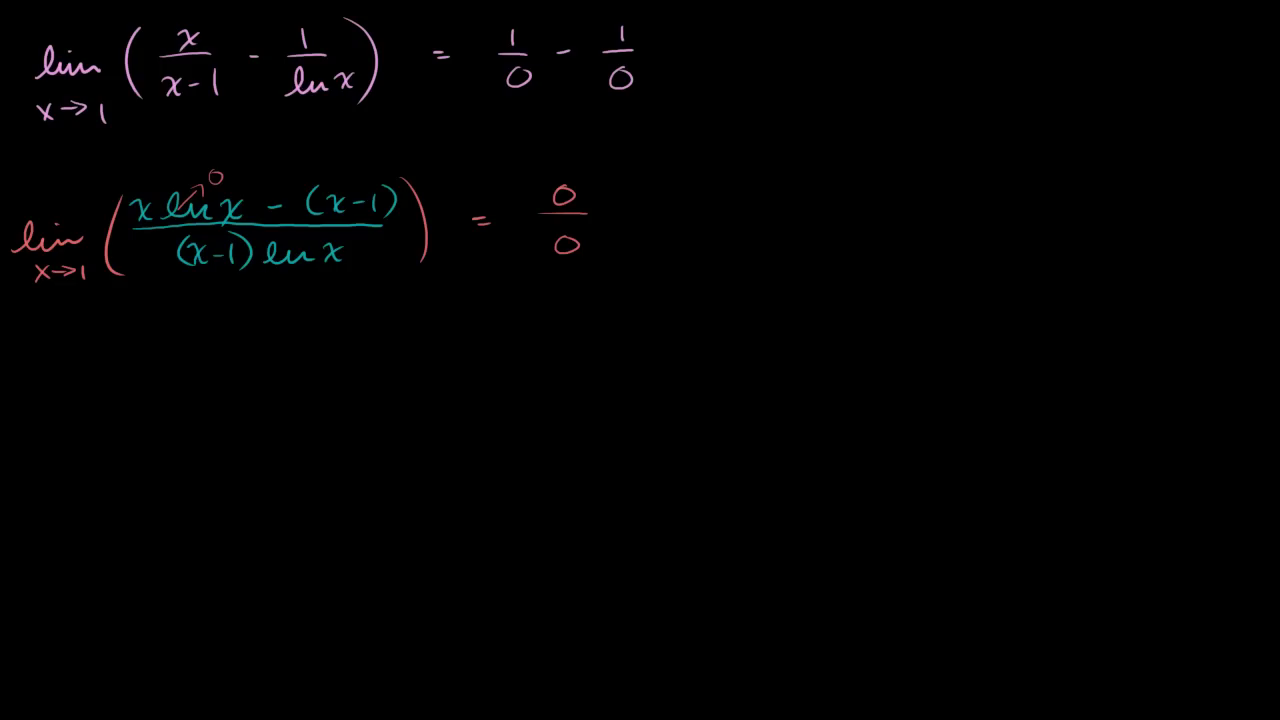 lim x→1 ( x/(x-1) - 1/ln x ) = 1/0 - 1/0
lim x→1 ( (x ln x →0 - (x-1)) / ((x-1) ln x) ) = 0/0